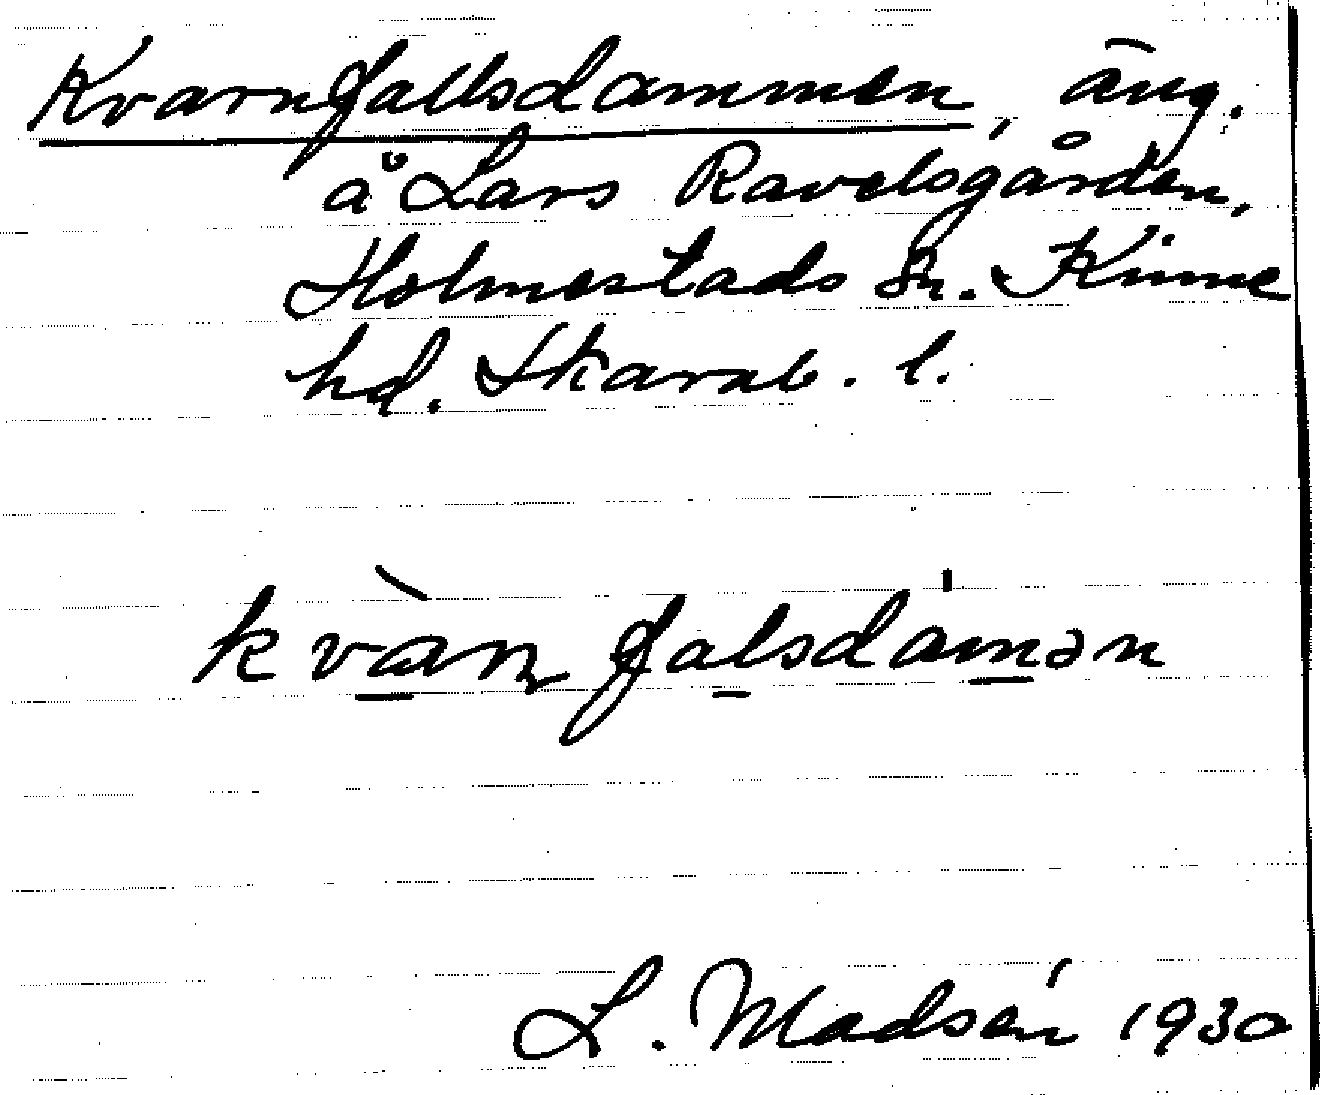 Kvarnfallsdammen, äng.
å Lars Ravelsgården,
Holmestads sn. Kinne
hd. Skarab. l.
kvàɳfalsdámən
L. Madsén 1930